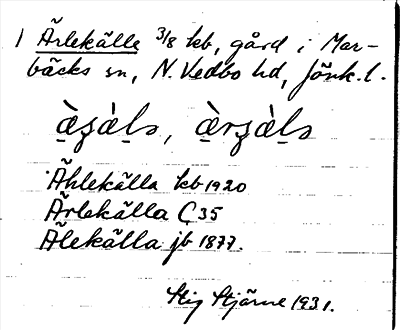 1 Ärlekälle 3/8 kb, gård i Mar-
bäcks sn, N. Vedbo hd, Jönk. l.
Åhlekälla kb 1920
Ärlekälla C 35
Älekälla jb 1877.
Stig Stjärne 1931.